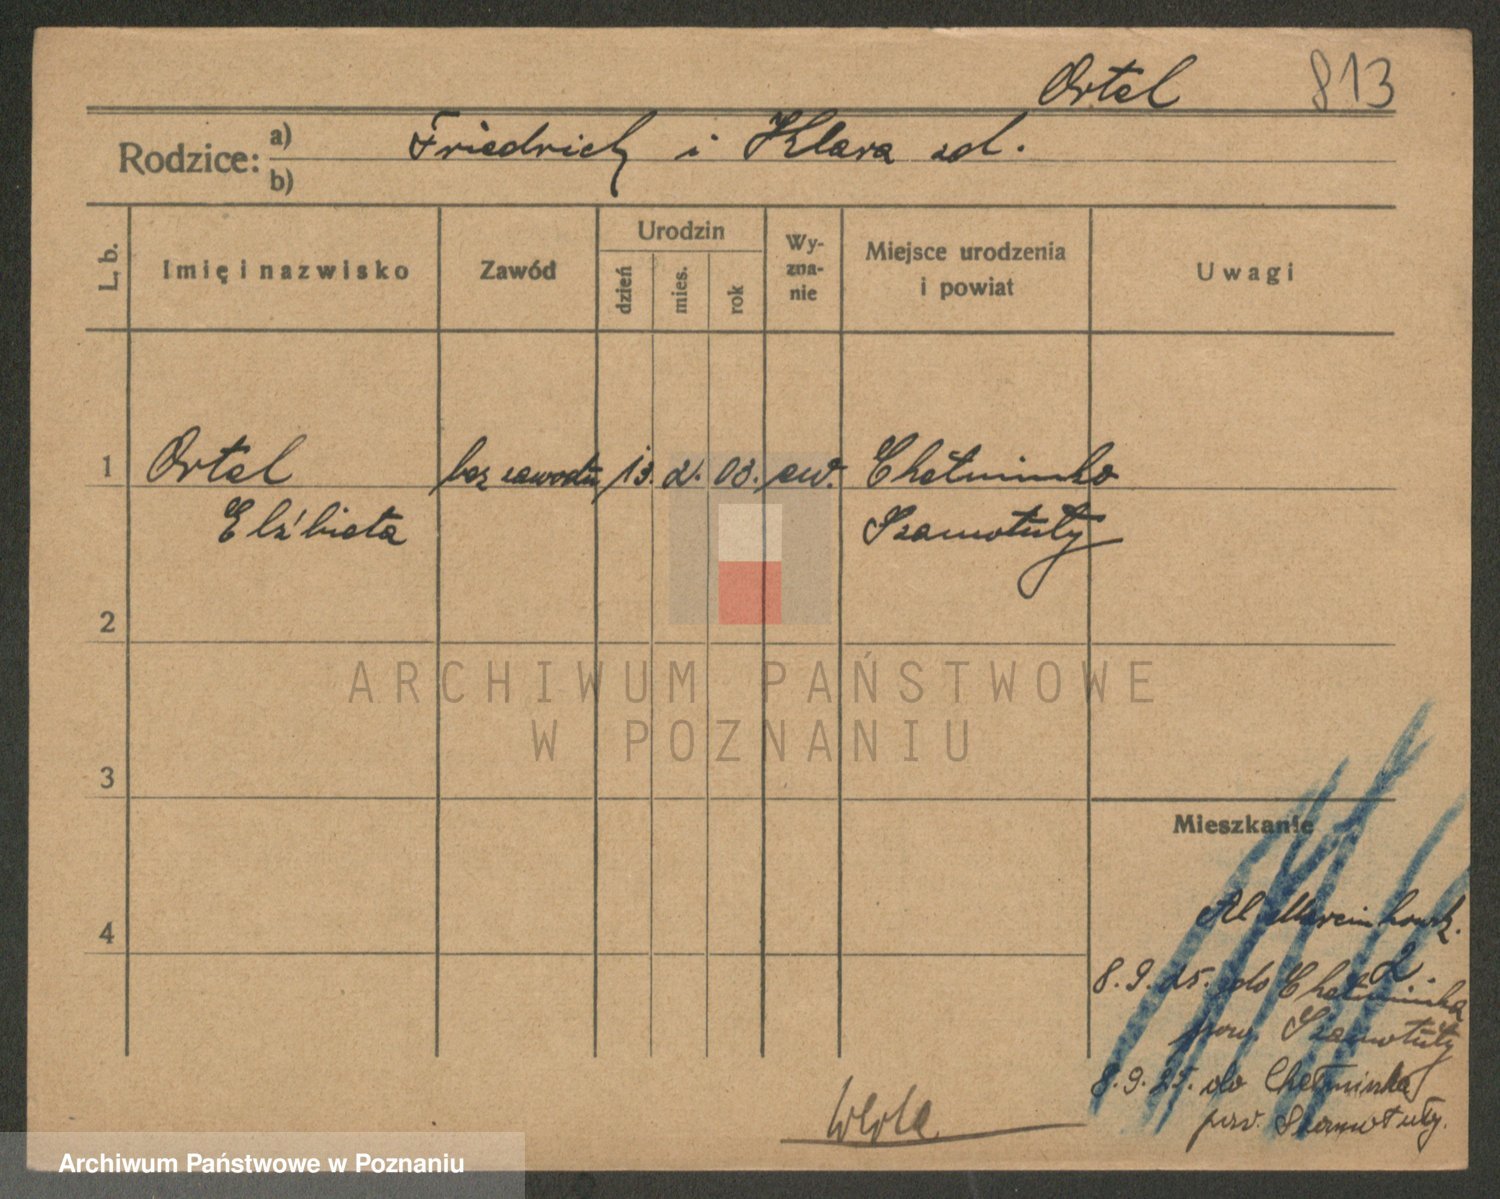 Ortel 813
Rodzice: a) Friedrich i Klara zd.
b)
L. b. Imię i nazwisko Zawód Urodzin dzień mies. rok Wy-zna-nie Miejsce urodzenia i powiat Uwagi
1 Ortel bez zawodu 13. 2. 03. ew. Chełminko
Elżbieta Szamotuły
2
3
4
Mieszkanie
Al Marcinkowsk.
2.
8.9.25. do Chełminka
pow. Szamotuły
8.9.25. do Chełminka
pow. Szamotuły.
ARCHIWUM PAŃSTWOWE
W POZNANIU
Archiwum Państwowe w Poznaniu